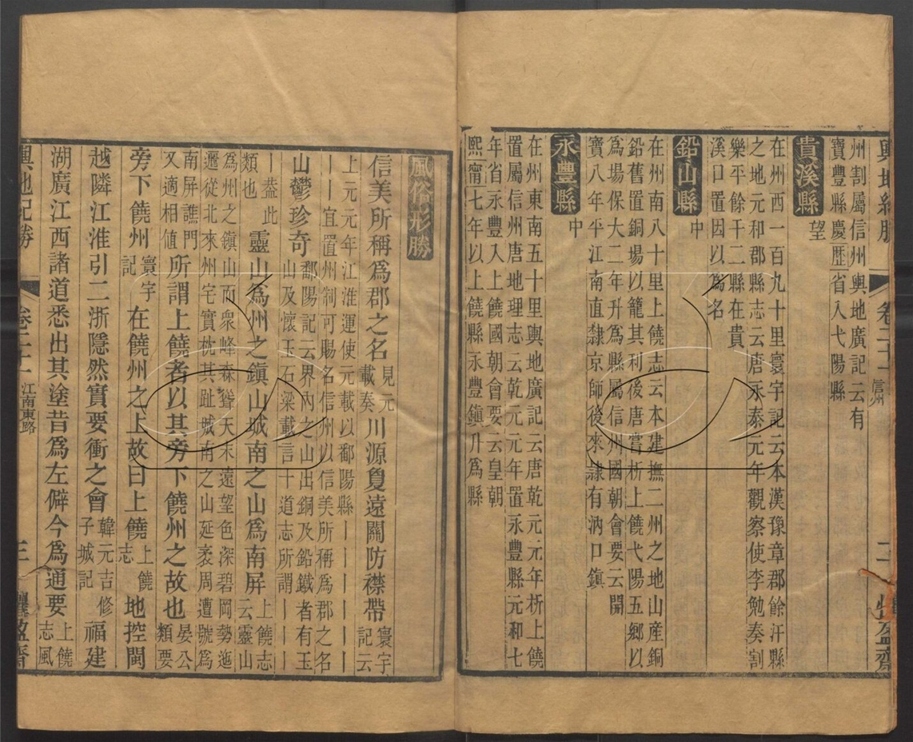 輿地紀勝 卷二十一 信州 二 懼盈齋
州割屬信州輿地廣記云有
寶豐縣慶歷省入弋陽縣
貴溪縣 望
在州西一百九十里寰宇記云本漢豫章郡餘汗縣
之地元和郡縣志云唐永泰元年觀察使李勉奏割
樂平餘干二縣在貴
溪口置因以爲名
鉛山縣 中
在州南八十里上饒志云本建撫二州之地山產銅
鉛舊置銅場以籠其利後唐嘗析上饒弋陽五鄉以
爲場保大二年升爲縣屬信州國朝會要云開
寶八年平江南直隸京師後來隸有汭口鎮
永豐縣 中
在州東南五十里輿地廣記云唐乾元元年析上饒
置屬信州唐地理志云乾元元年置永豐縣元和七
年省永豐入上饒國朝會要云皇朝
熙寧七年以上饒縣永豐鎮升爲縣
風俗形勝
信美所稱爲郡之名見元載奏川源敻遠關防襟帶寰宇記云
上元元年江淮運使元載以鄱陽縣丨丨丨丨丨丨
丨丨宜置州制可賜名信州以信美所稱爲郡之名
山鬱珍奇鄱陽記云界內之山出銅及鉛鐵者有玉山及懷玉石梁載言十道志所謂丨丨
丨丨蓋此類也靈山爲州之鎮山城南之山爲南屏上饒志云靈山
爲州之鎮山而衆峰森聳天末遠望色深碧岡勢迤
邐從北來州宅實枕其趾城南之山延袤周遭號爲
南屏譙門又適相值所謂上饒者以其旁下饒州之故也晏公類要
旁下饒州寰宇記在饒州之上故曰上饒上饒志地控閩
越隣江淮引二浙隱然實要衝之會韓元吉修子城記福建
湖廣江西諸道悉出其塗昔爲左僻今爲通要上饒志風
輿地紀勝 卷二十一 江南東路 三 懼盈齋